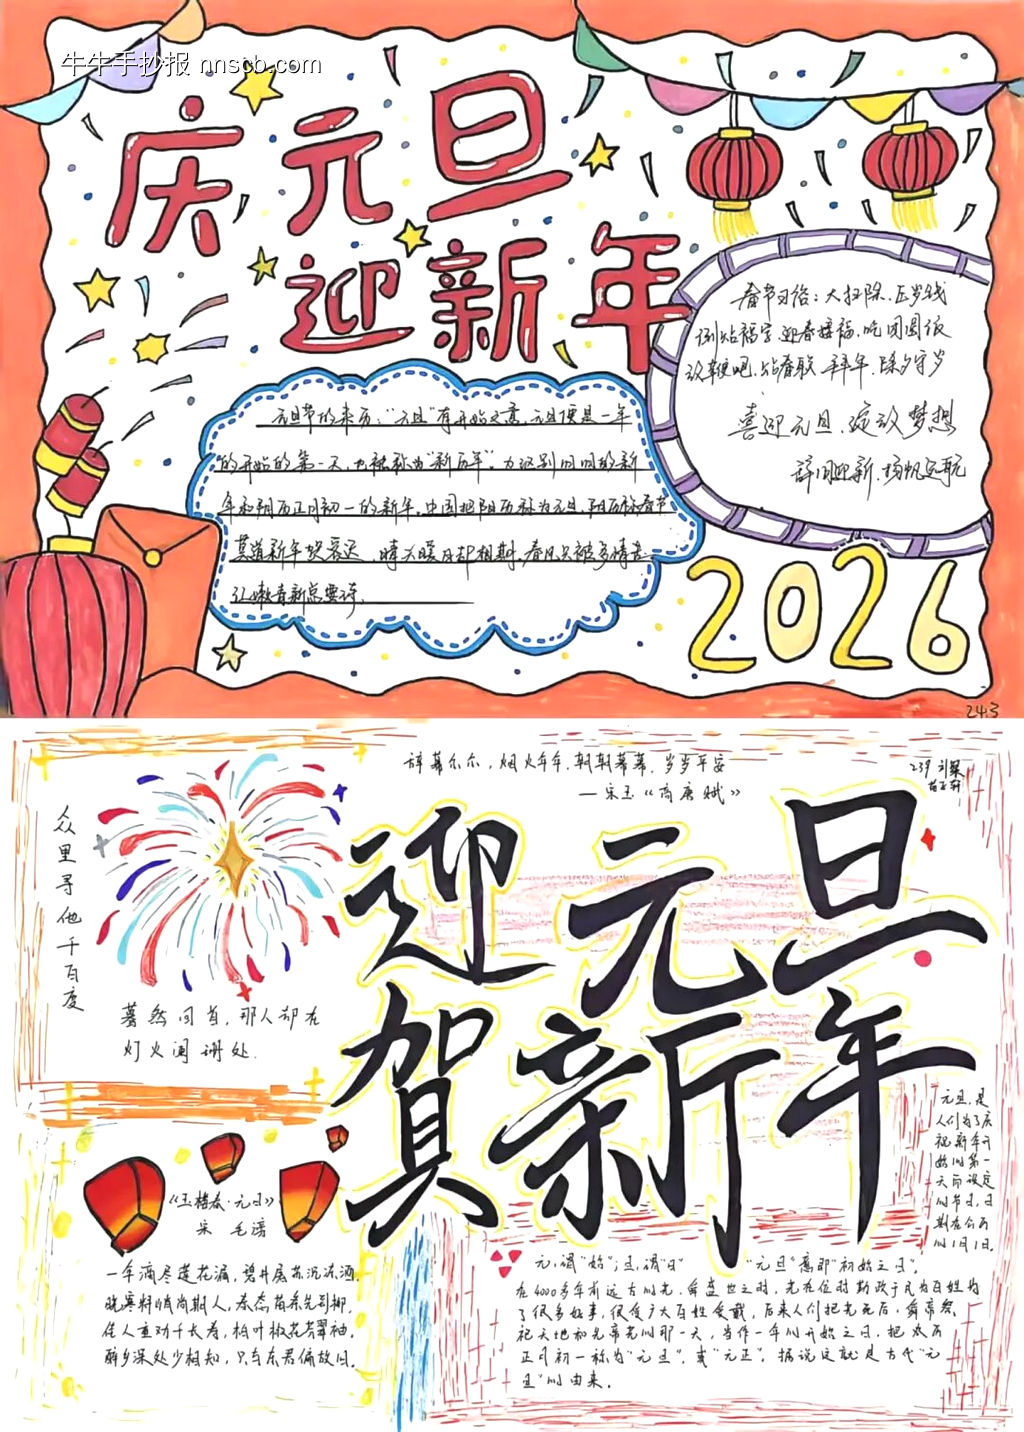 牛牛手抄报 nnscb.com
庆元旦
迎新年
春节习俗：大扫除、压岁钱
倒贴福字 迎春接福、吃团圆饭
放鞭炮、贴春联 拜年、除夕守岁
喜迎元旦、绽放梦想
辞旧迎新、扬帆远航
元旦节的来历："元旦"有开始之意，元旦便是一年
的开始的第一天，也被称为"新历年"。为区别旧的新
年和阳历正月初一的新年。中国把阳历称为元旦，阴历称春节
莫道新年与春迟，晴天暖日却相期，春风只被多情
2026
243
辞暮尔尔，烟火年年，朝朝暮暮，岁岁平安
—宋玉《高唐赋》
239
迎元旦
贺新年
众里寻他千百度
蓦然回首，那人却在
灯火阑珊处.
《玉楼春·元日》
宋 毛滂
一年滴尽莲花漏，碧井屠苏沉冻酒。
晓寒料峭尚欺人，春态苗条先到柳。
佳人重劝千长寿，柏叶椒花芬翠袖。
醉乡深处少相知，只与东君偏故旧。
元旦，是
人们为了庆
祝新年开
始的第一
天而设定
的节日，日
期在公历
的1月1日。
元，谓"始"；旦，谓"日" "元旦"意即"初始之日"，
在4000多年前远古时光，尧舜盛世之时，尧在位时勤政于民为百姓办
了很多好事，很受广大百姓爱戴，后来人们把尧死后，舜帝祭
祀天地和先帝尧的那一天，当作一年的开始之日，把农历
正月初一称为"元旦"，或"元正"，据说这就是古代"元
旦"的由来。